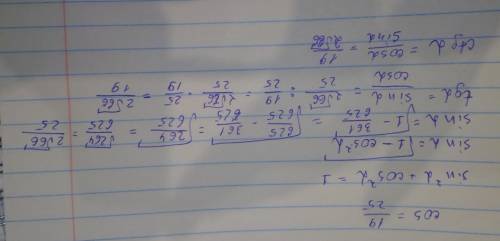 cos = 19/25
sin²α + cos²α = 1
sin α = √(1 - cos²α)
sin α = √(1 - 361/625) = √(625/625 - 361/625) = √(264/625) = √264/625 = 2√66/25
tg α = sin α/cos α = 2√66/25 : 19/25 = 2√66/25 · 25/19 = 2√66/19
ctg α = cos α/sin α = 19/2√66